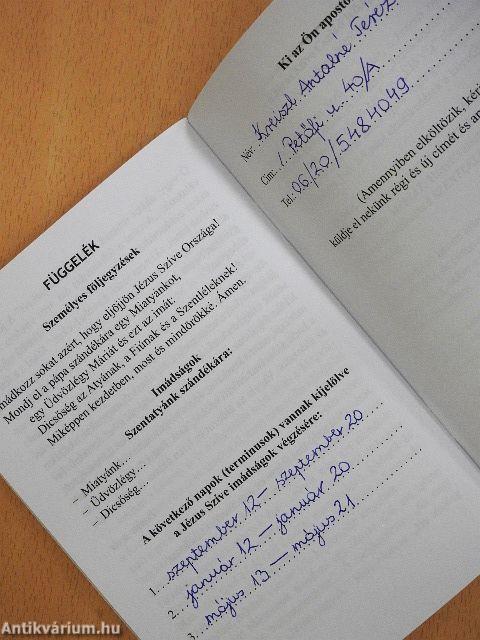 FÜGGELÉK
Személyes följegyzések
mádkozz sokat azért, hogy eljőjjön Jézus Szíve Országa!
Mondj el a pápa szándékára egy Miatyánkot,
egy Üdvözlégy Máriát és ezt az imát:
Dicsőség az Atyának, a Fiúnak és a Szentléleknek!
Miképpen kezdetben, most és mindörökké. Ámen.
Imádságok
Szentatyánk szándékára:
– Miatyánk…
– Üdvözlégy…
– Dicsőség…
A következő napok (terminusok) vannak kijelölve
a Jézus Szíve imádságok végzésére:
1. szeptember 12 – szeptember 20
2. január 12 – január 20
3. május 13 – május 21
Ki az Ön aposto
Név: Kreiszl Antalné Teréz
Cím: Petőfi u. 40/A
Tel.: 06/20/5484049
(Amennyiben elköltözik, kérj
küldje el nekünk régi és új címét és an
Antikvárium.hu